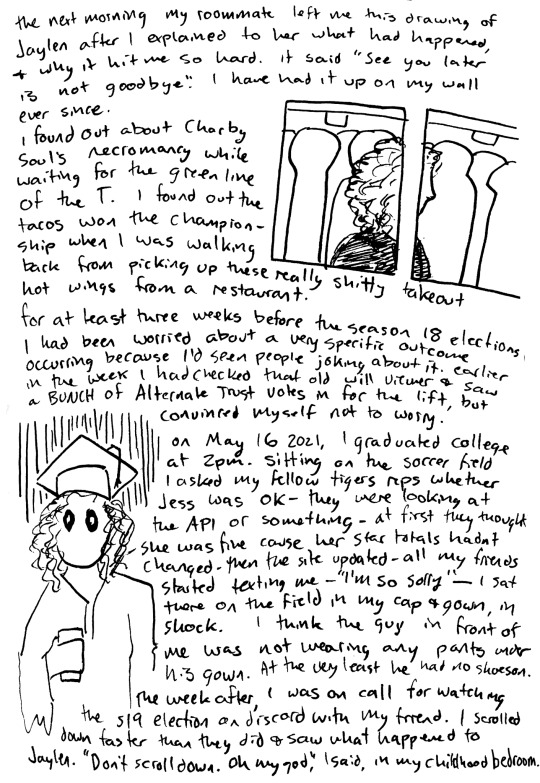 the next morning my roommate left me this drawing of
Jaylen after I explained to her what had happened,
& why it hit me so hard. it said "See you later
is not goodbye". I have had it up on my wall
ever since.
i found out about Charby
Soul's necromancy while
waiting for the green line
of the T. I found out the
tacos won the champion-
ship when I was walking
back from picking up these really shitty takeout
hot wings from a restaurant.
for at least three weeks before the season 18 elections,
I had been worried about a very specific outcome
occurring because I'd seen people joking about it. earlier
in the week I had checked that old will viewer & saw
a BUNCH of Alternate Trust votes in for the lift, but
convinced myself not to worry.
on May 16 2021, I graduated college
at 2pm. Sitting on the soccer field
I asked my fellow tigers reps whether
Jess was OK - they were looking at
the API or something - at first they thought
she was fine cause her star totals hadnt
changed - then the site updated - all my friends
started texting me - "I'm so sorry" - I sat
there on the field in my cap & gown, in
shock. I think the guy in front of
me was not wearing any pants under
his gown. At the very least he had no shoes on.
The week after, I was on call for watching
the s19 election on discord with my friend. I scrolled
down faster than they did & saw what happened to
Jaylen. "Don't scroll down. Oh my god," I said, in my childhood bedroom.